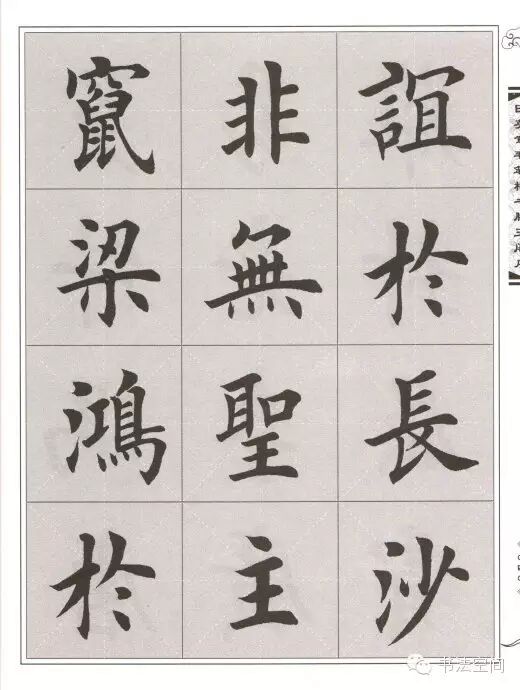 誼於長沙
非無聖主
竄梁鴻於
书法空间